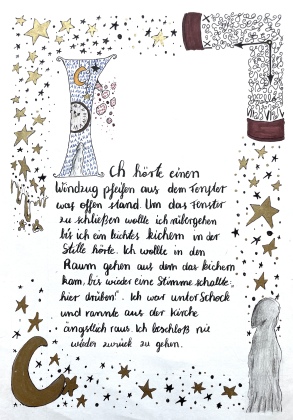 Ich hörte einen
Windzug pfeifen aus dem Fenster
was offen stand. Um das Fenster
zu schließen wollte ich rübergehen
bis ich ein leichtes kichern in der
Stille hörte. Ich wollte in den
Raum gehen aus dem das kichern
kam, bis wieder eine Stimme schallte:
„hier drüben!". Ich war unter Schock
und rannte aus der Kirche
ängstlich raus. Ich beschloß nie
wieder zurück zu gehen.